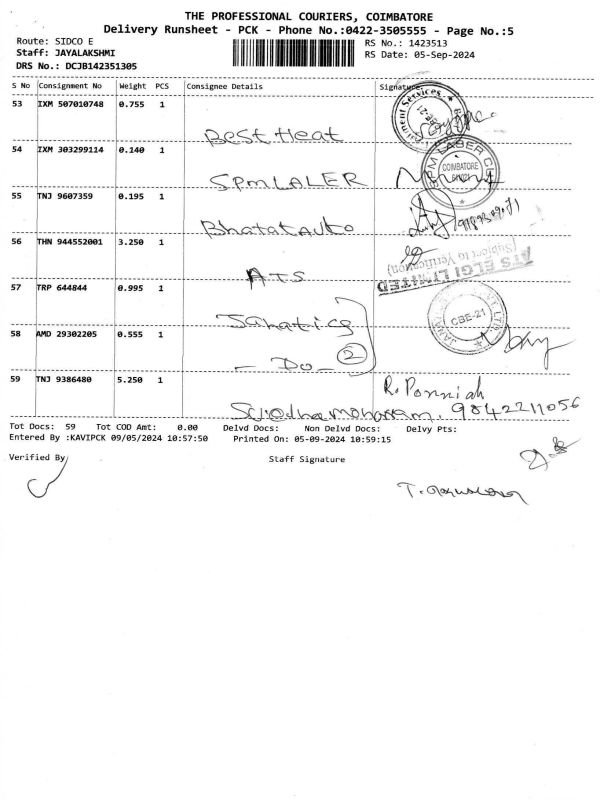 THE PROFESSIONAL COURIERS, COIMBATORE
Delivery Runsheet - PCK - Phone No.:0422-3505555 - Page No.:5
Route: SIDCO E
RS No.: 1423513
Staff: JAYALAKSHMI
RS Date: 05-Sep-2024
DRS No.: DCJB142351305
S No Consignment No Weight PCS Consignee Details Signature
53 IXM 507010748 0.755 1
Best Heat
54 IXM 303299114 0.140 1
SPM LALER
SPM LASER
COIMBATORE
55 TNJ 9607359 0.195 1
Bharat Auto
56 THN 944552001 3.250 1
ATS
ATS ELGI LIMITED
(Subject to Verification)
57 TRP 644844 0.995 1
Janatics
CBE-21
58 AMD 29302205 0.555 1
- Do - 2
59 TNJ 9386480 5.250 1
R. Ponniah
9842211056
Tot Docs: 59 Tot COD Amt: 0.00 Delvd Docs: Non Delvd Docs: Delvy Pts:
Entered By :KAVIPCK 09/05/2024 10:57:50 Printed On: 05-09-2024 10:59:15
Verified By Staff Signature